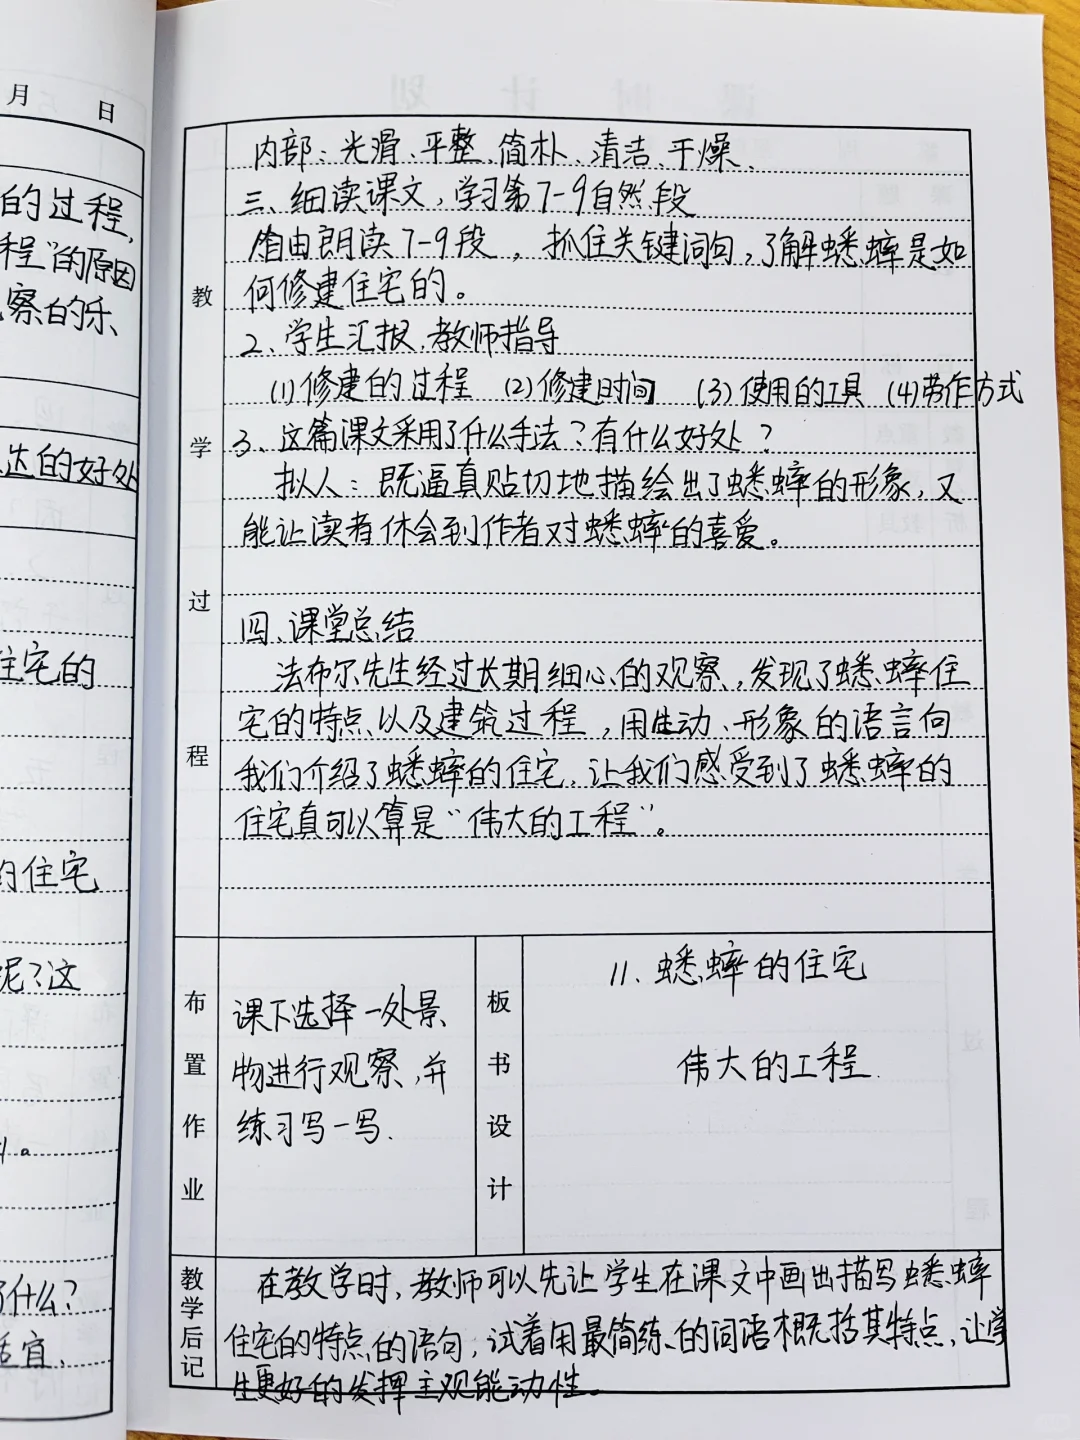 月 日
的过程,
程"的原因
察的乐
达的好处
住宅的
的住宅
呢?这
什么?
适宜.
教学过程
内部:光滑、平整 简朴、清洁、干燥、
三、细读课文,学习第7-9自然段
自由朗读7-9段,抓住关键词句,了解蟋蟀是如
何修建住宅的。
2、学生汇报,教师指导
(1)修建的过程 (2)修建时间 (3)使用的工具 (4)劳作方式
3、这篇课文采用了什么手法?有什么好处?
拟人:既逼真贴切地描绘出了蟋蟀的形象,又
能让读者体会到作者对蟋蟀的喜爱。
四、课堂总结
法布尔先生经过长期细心的观察,发现了蟋蟀住
宅的特点以及建筑过程,用生动、形象的语言向
我们介绍了蟋蟀的住宅,让我们感受到了蟋蟀的
住宅真可以算是"伟大的工程"。
布置作业
课下选择一处景
物进行观察,并
练习写一写.
板书设计
11.蟋蟀的住宅
伟大的工程.
教学后记
在教学时,教师可以先让学生在课文中画出描写蟋蟀
住宅的特点的语句,试着用最简练的词语概括其特点,让学
生更好的发挥主观能动性。